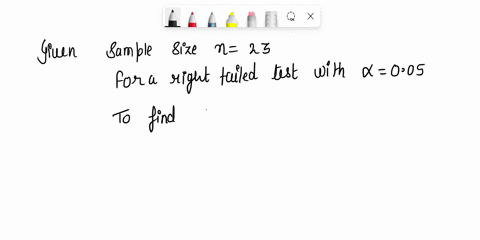 Given Sample Size n= 23
for a right tailed test with α = 0.05
To find